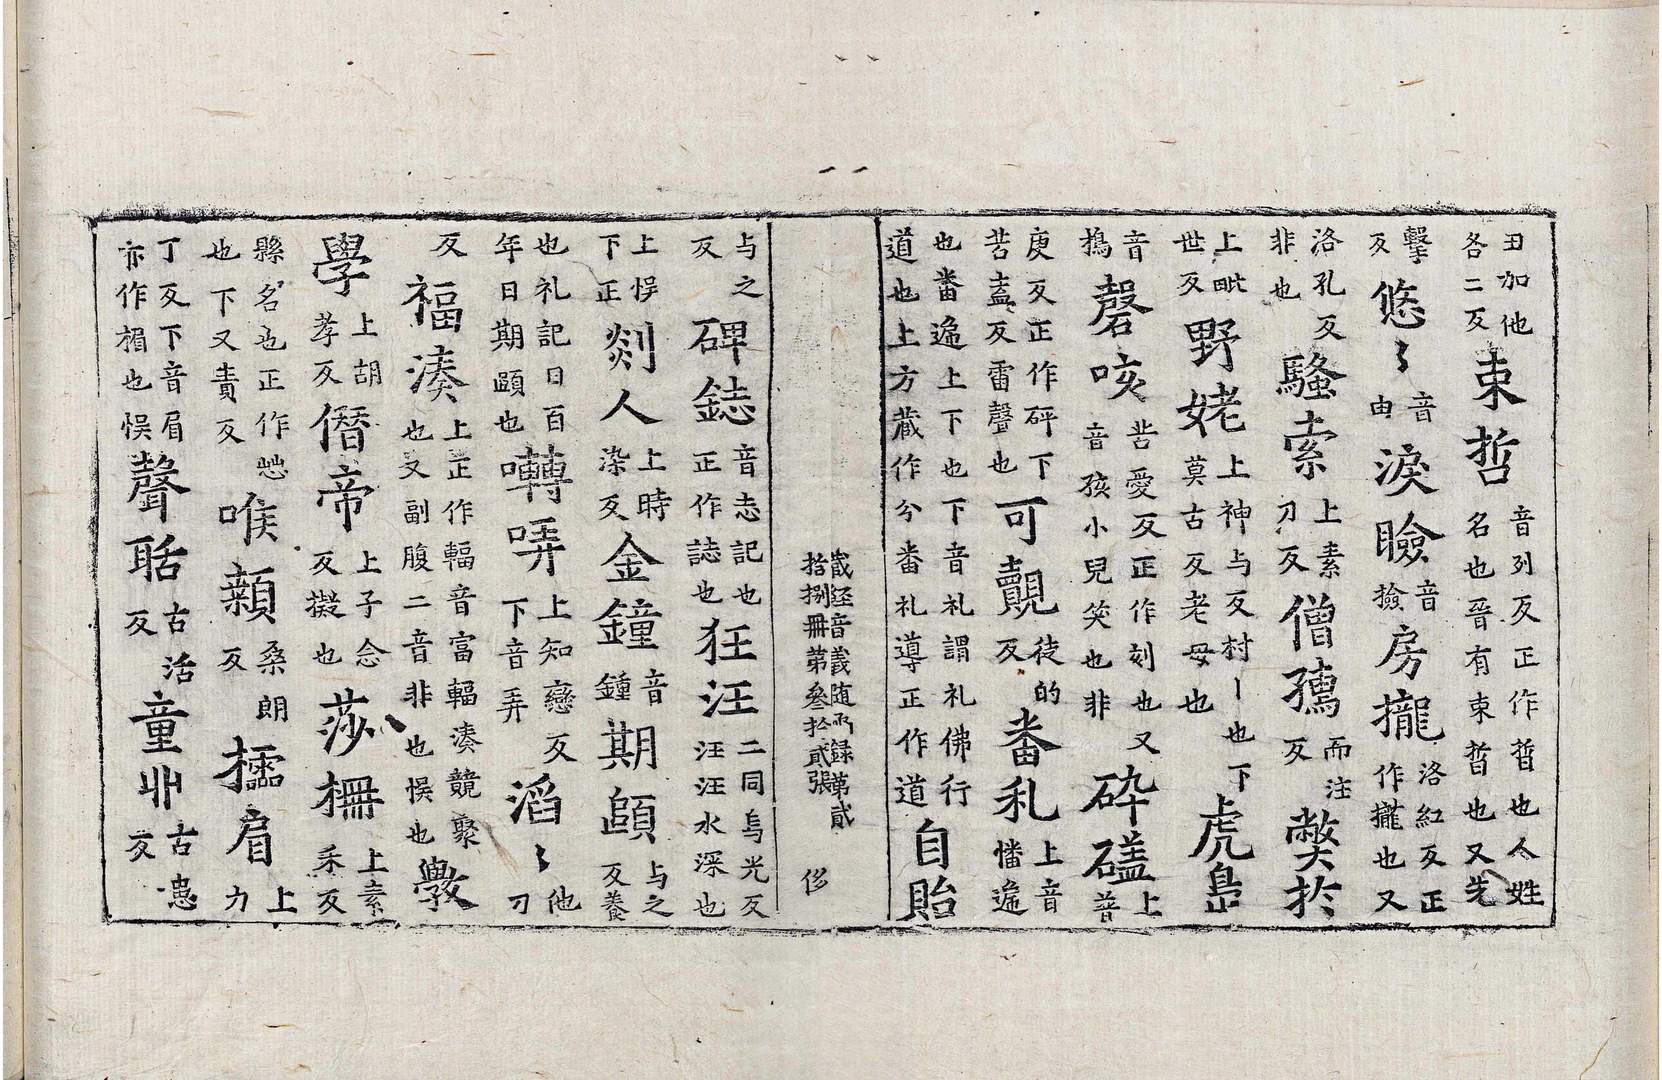 丑加他各二反束哲音列反正作晢也人姓名也晉有束晢也又先
擊反悠〻音由淚瞼音撿房攏洛紅反正作攏也又
洛孔反非也騷索上素刀反僧䳲而注反獘於
上毗世反野姥上神与反村丨也下莫古反老母也虎㠀
音搗磬咳苦愛反正作刻也又音孩小兒笑也非砕礚上普
庚反正作砰下苦盍反雷聲也可覿徒的反畨礼上音憣遆
也畨遆上下也下音礼謂礼佛行道也上方蔵作分畨礼導正作道自貽
蔵経音義随函録第貳拾捌冊第叄拾貳張 侈
与之反碑鋕音志記也正作誌也狂汪二同烏光反汪汪水深也
上悮下正剡人上時染反金鐘音鍾期頤与之反養
也礼記曰百年曰期頤也囀哢上知戀反下音弄滔〻他刀
反福湊上正作輻音富輻湊競聚也又副腹二音非也悮也斆
學上胡孝反僭帝上子念反擬也莎柵上素禾反
縣名也正作㦬也下又責反㗋顙桑朗反㩹眉上力
丁反下音眉亦作楣也悮聲聒古活反童丱古患反